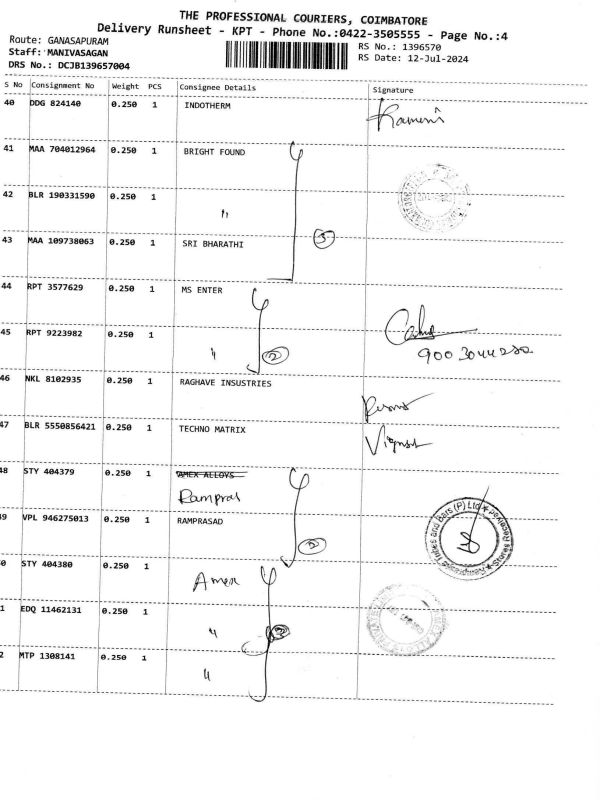 THE PROFESSIONAL COURIERS, COIMBATORE
Delivery Runsheet - KPT - Phone No.:0422-3505555 - Page No.:4
Route: GANASAPURAM
RS No.: 1396570
Staff: MANIVASAGAN
RS Date: 12-Jul-2024
DRS No.: DCJB139657004
S No Consignment No Weight PCS Consignee Details Signature
40 DDG 824140 0.250 1 INDOTHERM
41 MAA 704012964 0.250 1 BRIGHT FOUND
42 BLR 190331590 0.250 1 "
3
43 MAA 109738063 0.250 1 SRI BHARATHI
44 RPT 3577629 0.250 1 MS ENTER
45 RPT 9223982 0.250 1 " 2
46 NKL 8102935 0.250 1 RAGHAVE INSUSTRIES
47 BLR 5550856421 0.250 1 TECHNO MATRIX
48 STY 404379 0.250 1 AMEX ALLOYS
Rampras
49 VPL 946275013 0.250 1 RAMPRASAD
Ramprasad Tubes and Bars (P) Ltd
0 STY 404380 0.250 1 Amex
1 EDQ 11462131 0.250 1 "
2 MTP 1308141 0.250 1 "